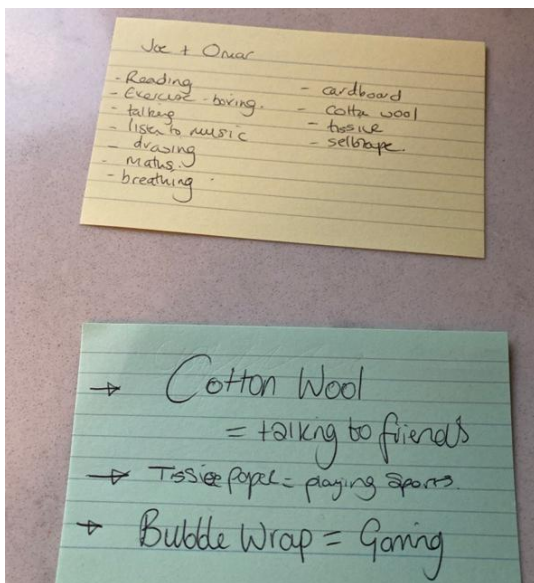 Joe + Omar
- Reading
- Exercise - boxing.
- talking
- listen to music
- drawing
- maths.
- breathing
- cardboard
- Cotton wool
- tissue
- sellotape.
→ Cotton Wool
= talking to friends
→ Tissue paper = playing sports.
→ Bubble Wrap = Gaming